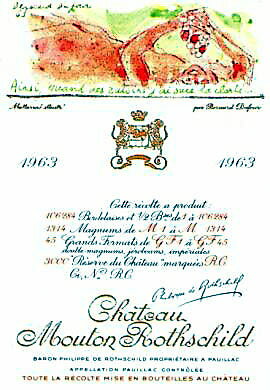 Bernard Dufour
Ainsi, quand des raisins j'ai sucé la clarté...
Mallarmé illustré par Bernard Dufour
1963 1963
Cette récolte a produit:
106284 Bordelaises et 1/2 Bses de 1 à 106284
1314 Magnums de M 1 à M 1314
45 Grands Formats de G F 1 à G F 45
double-magnums, jéroboams, impériales
3000 "Réserve du Château" marquées R.C.
Ci, N.º R.C.
Philippe de Rothschild
Château
Mouton Rothschild
BARON PHILIPPE DE ROTHSCHILD PROPRIÉTAIRE A PAUILLAC
APPELLATION PAUILLAC CONTRÔLÉE
TOUTE LA RÉCOLTE MISE EN BOUTEILLES AU CHÂTEAU